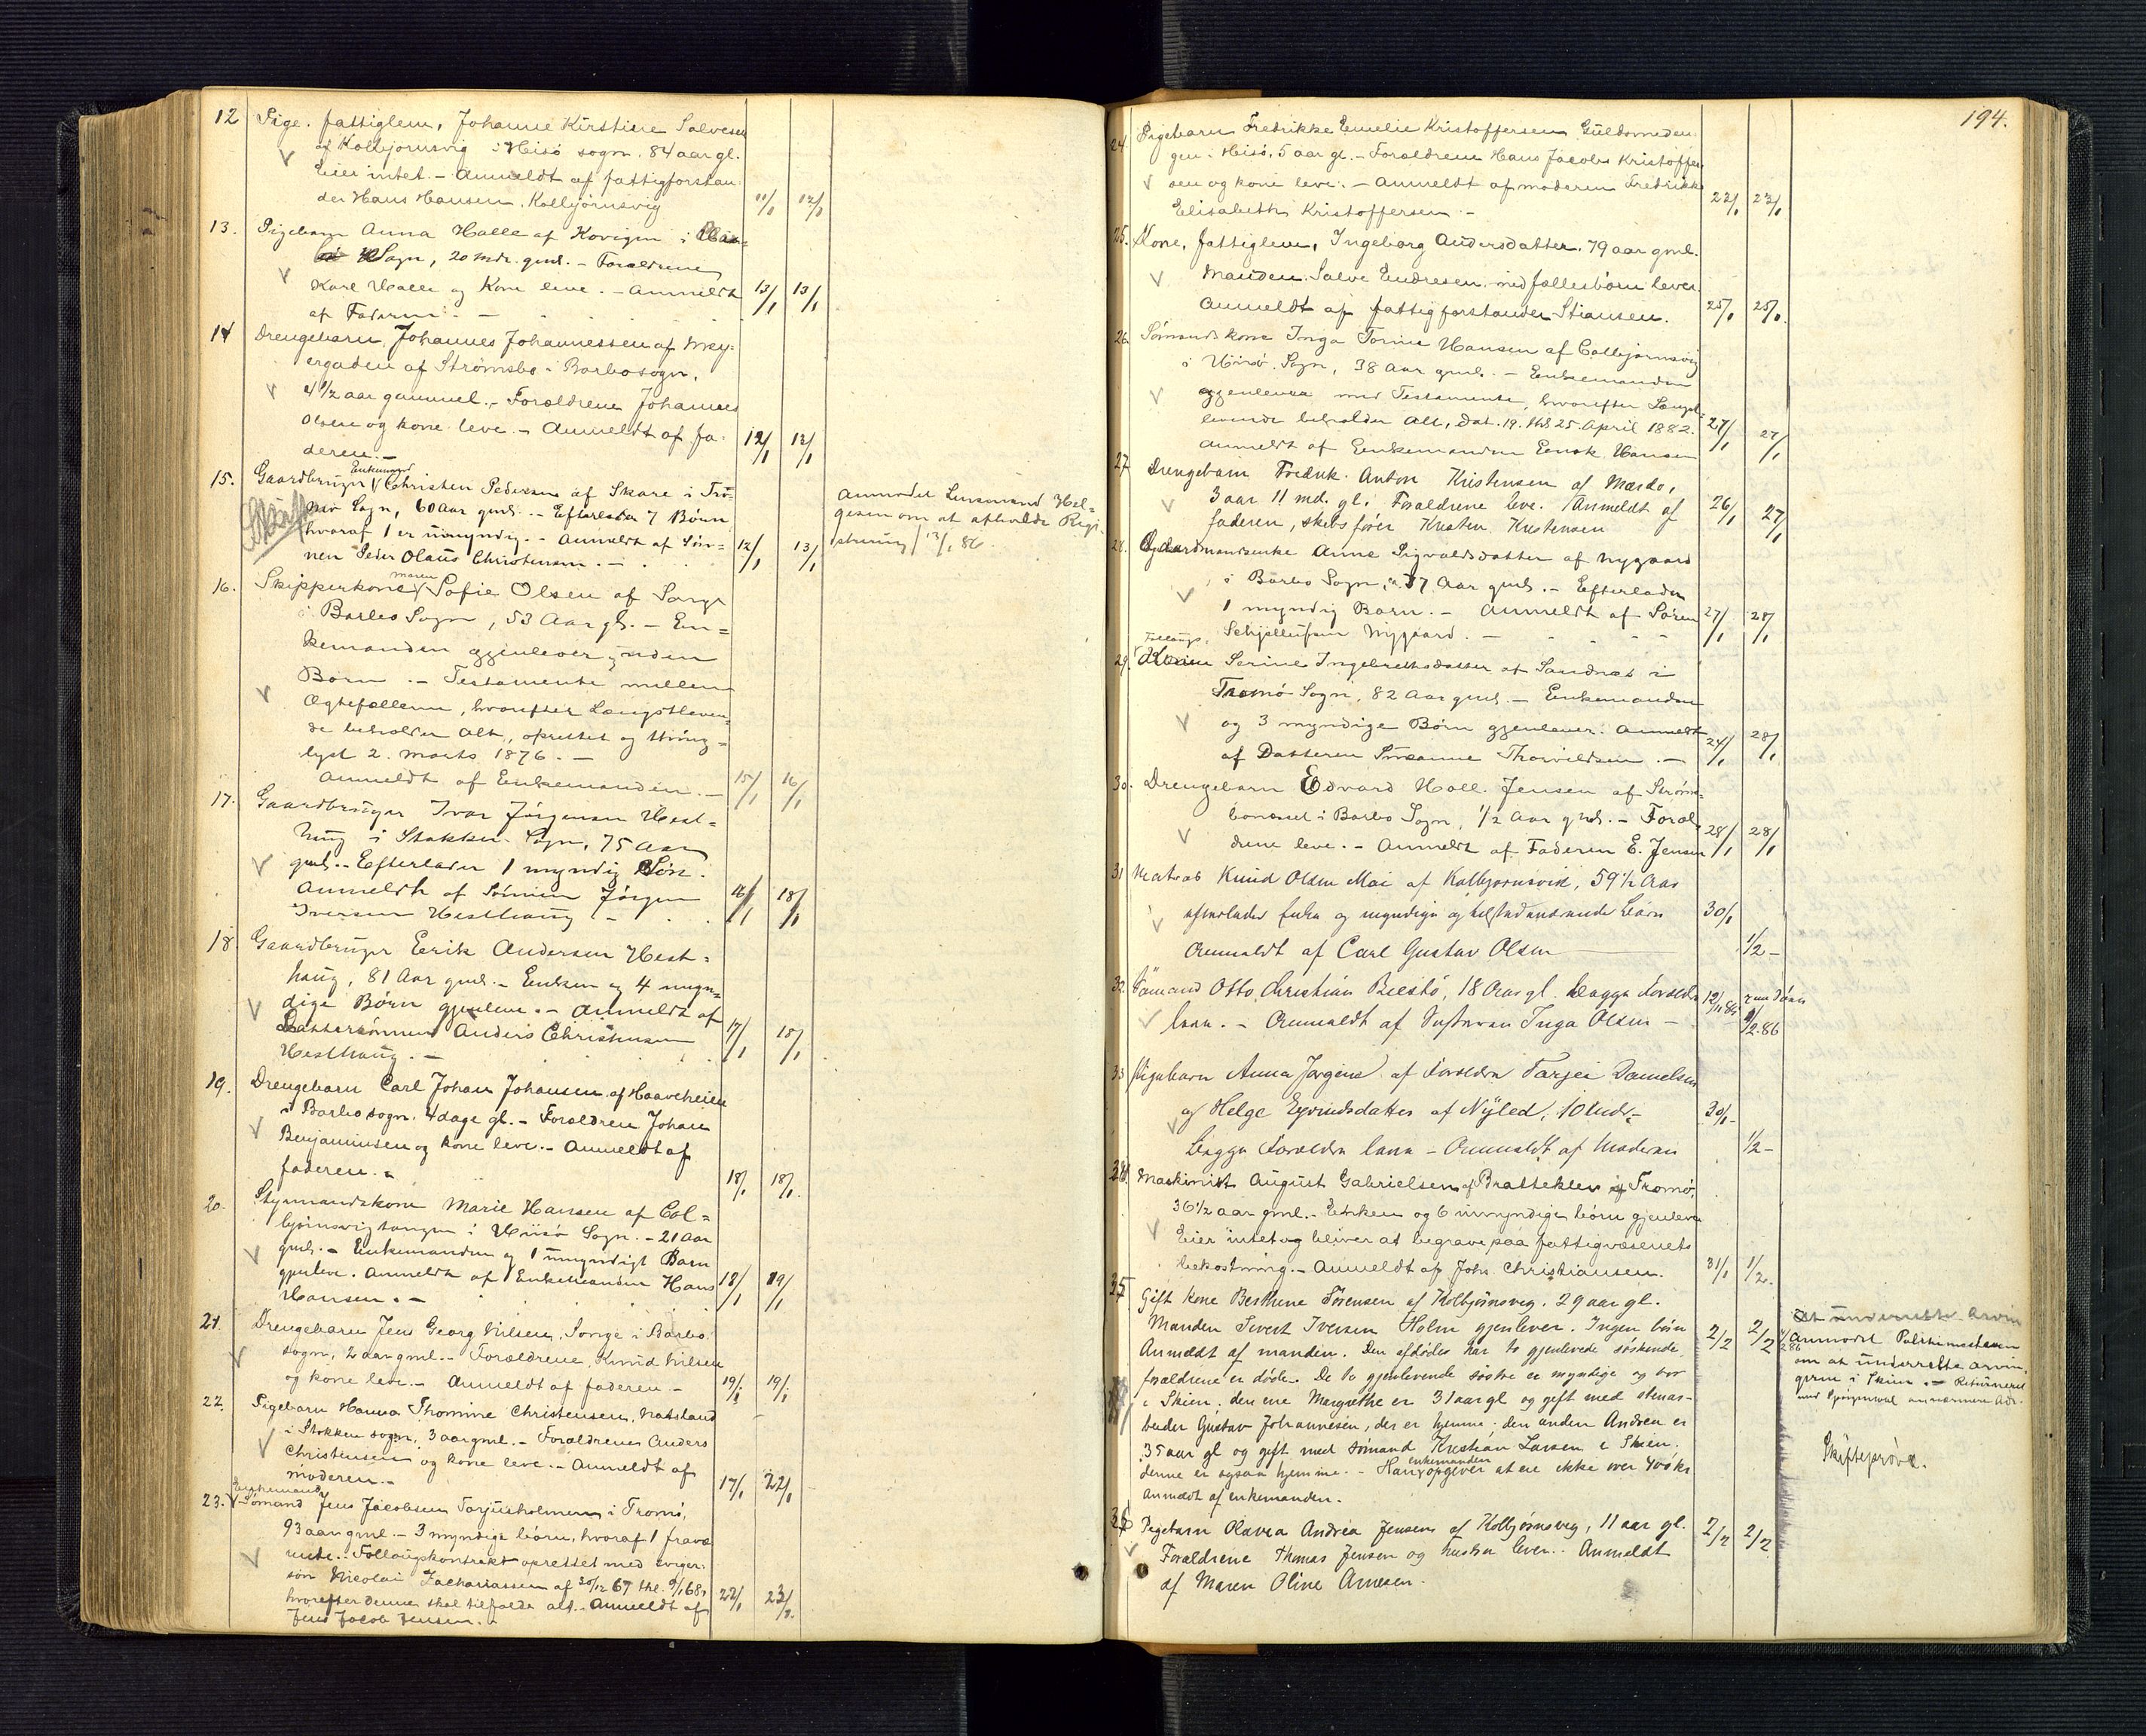 12 Pige, fattiglem, Johanne Kirstine Salvesen
af Kolbjørnsvig i Hisö sogn, 84 aar gl.
Eier intet. - Anmeldt af fattigforstan
der Hans Hansen, Kolbjörnsvig 11/1 12/1
13. Pigebarn Anna Halle af Kovigen i
Sogn, 20 mdr. gml. - Forældrene
Karl Halle og Kone leve. - Anmeldt 13/1 13/1
af Faderen. -
14 Drengebarn, Johannes Johannessen af Mey-
ergaden af Strömsbo i Barbo sogn,
4 1/2 aar gammel. - Forældrene Johannes
Olsen og kone leve. - Anmeldt af fa- 12/1 12/1
deren. -
15. Gaardbruger Enkemand Christen Pedersen af Skare i Tro-
mö Sogn, 60 Aar gml. - Efterlader 7 Börn
hvoraf 1 er umyndig. - Anmeldt af Søn-
nen Peder Olaus Christensen. - 12/1 13/1
Anmodet Lensmand Hel-
gesen om at afholde Regi
strering 13/1 86.
16. Skipperkone Maren Sofie Olsen af Songe
i Barbo Sogn, 53 Aar gl. - En=
kemanden gjenlever, uden
Börn. - Testamente mellem
Ægtefællerne, hvorefter Længstleven-
de beholder Alt, oprettet og thing=
lyst 2. Marts 1876. -
Anmeldt af Enkemanden. - 15/1 16/1
17. Gaardbruger Ivar Jörgensen Hest=
haug i Stokken Sogn, 75 Aar
gml. - Efterlader 1 myndig Sön.
Anmeldt af Sönnen Jörgen 16/1 18/1
Iversen Hesthaug -
18. Gaardbruger Erik Andersen Hest=
haug, 81 Aar gml. - Enken og 4 myn-
dige Börn gjenleve. - Anmeldt af
Dattersönnen Anders Christensen 17/1 18/1
Hesthaug. -
19. Drengebarn Carl Johan Johansen af Haaveheien
i Barbo sogn. 4 dage gl. - Forældren Johan
Benjaminsen og kone leve. - Anmeldt af
faderen. - 18/1 18/1
20. Styrmandskone Marie Hansen af Col=
björnsvigtangen i Hisö Sogn. - 21 Aar
gml. - Enkemanden og 1 umyndigt Barn
gjenleve. Anmeldt af Enkemanden Hans 18/1 19/1
Hansen. -
21. Drengebarn Jens Georg Nilsen, Songe i Barbo
sogn, 2 aar gml. - Forældrene, Knud Nilsen
og kone leve. - Anmeldt af faderen. - 19/1 19/1
22. Pigebarn Hanna Thomine Christensen, Natsland
i Stokken sogn, 3 aar gml. - Forældrene Anders
Christensen og kone leve. - Anmeldt af
moderen. - 17/1 22/1
23. Enkemand Sömand Jens Jacobsen Torjusholmen i Tromö,
93 aar gml. - 3 myndige börn, hvoraf 1 fravæ
rende. - Föllaugskontrakt oprettet med sviger-
sön Nicolai Zachariassen af 30/12 67 thl. 9/1 68,
hvorefter denne skal tilfalde alt. - Anmeldt af 22/1 23/1
Jens Jacob Jensen. -
194.
24. Pigebarn Fredrikke Emelie Kristoffersen Guldsmeden
gen i Hisö, 5 aar gl. - Forældrene Hans Jacob Kristoffer
sen og kone leve. - Anmeldt af moderen Fredrikke
Elisabeth Kristoffersen. - 22/1 23/1
25. Kone, fattiglem, Ingeborg Andersdatter, 79 aar gml.
Manden Salve Endresen med fællesbörn lever.
Anmeldt af fattigforstander Stiansen. 25/1 25/1
26. Sömandskone Inga Torine Hansen af Colbjörnsvig
i Hisö Sogn, 38 Aar gml. - Enkemanden
gjenlever med Testamente, hvorefter Længst-
levende beholder Alt, Dat. 19. thl 25. April 1882. 27/1 27/1
Anmeldt af Enkemanden Enok Hansen
27 Drengebarn Fredrik Anton Kristensen af Mærdo,
3 aar 11 md. gl. Forældrene leve. Anmeldt af 26/1 27/1
faderen, skibsfører Kristen Kristensen
28. Gaardmandsenke Anne Sigvaldsdatter af Nygaard
i Barbo Sogn, 87 Aar gml. - Efterlader
1 myndig Barn. - Anmeldt af Sören 27/1 28/1
Schjellufsen Nygaard. -
29. Follaugs- Konen Serine Ingebrethsdatter af Sandnæs i
Tromö Sogn, 82 Aar gml. - Enkemanden
og 3 myndige Börn gjenlever. Anmeldt
af Datteren Susanne Thorvildsen. - 24/1 28/1
30. Drengebarn Edvard Hall. Jensen af Ström-
bonæsset i Barbo Sogn, 1/2 Aar gml. - Foræl
drene leve. - Anmeldt af Faderen E. Jensen 28/1 28/1
31 Matros Knud Olsen Mai af Kolbjørnsvik, 59 1/2 Aar
efterlader Enke og myndige og tilstedeværende Børn 30/1
Anmeldt af Carl Gustav Olsen 1/2 -
32. Sømand Otto Christian Bilstö, 18 Aar gl. begge Forældre 12/11 85
leve. - Anmeldt af Søsteren Inga Olsen - 1/2 86
33 Pigebarn Anna Jørgine af Forældre Tarjei Danielsen
og Helge Eyvindsdatter af Nyled, 10 Mdr - 30/1 -
begge Forældre leve - Anmeldt af Moderen 1/2 -
34. Maskinist August Gabrielsen af Bratteklev i Tromö,
36 1/2 aar gml. - Enken og 6 umyndige börn gjenleve
Eier intet og bliver at begrave paa fattigvæsenets
bekostning. - Anmeldt af Johs Christiansen. 31/1 1/2.
35 Gift kone Berthine Sörensen af Kolbjörnsveg. 29 aar gl.
Manden Sivert Iversen Holm gjenlever. Ingen börn 2/2 2/2
Anmeldt af manden. Den afdödes har to gjenlevede söskende,
forældrene er döde. De to gjenlevende söstre er myndige og bor
i Skien, den ene Margrethe er 31 aar gl og gift med stenar-
beider Gustav Johannesen, der er hjemme; den anden Andrea er
35 aar gl og gift med sömand Kristian Larsen i Skien;
denne er ogsaa hjemme. - Han enkemanden opgiver at eie ikke over 400 kr
Anmeldt af enkemanden.
At underrette Arvin
Anmodet Politimesteren
om at underrette Arvin-
gerne i Skien. - Returneret
Skifteprøve.
36 Pigebarn Olavia Andrea Jensen af Kolbjörnsveg, 11 aar gl. 2/2 2/2
Forældrene Thomas Jensen og hustru lever. Anmeldt
af Maren Oline Arnesen.